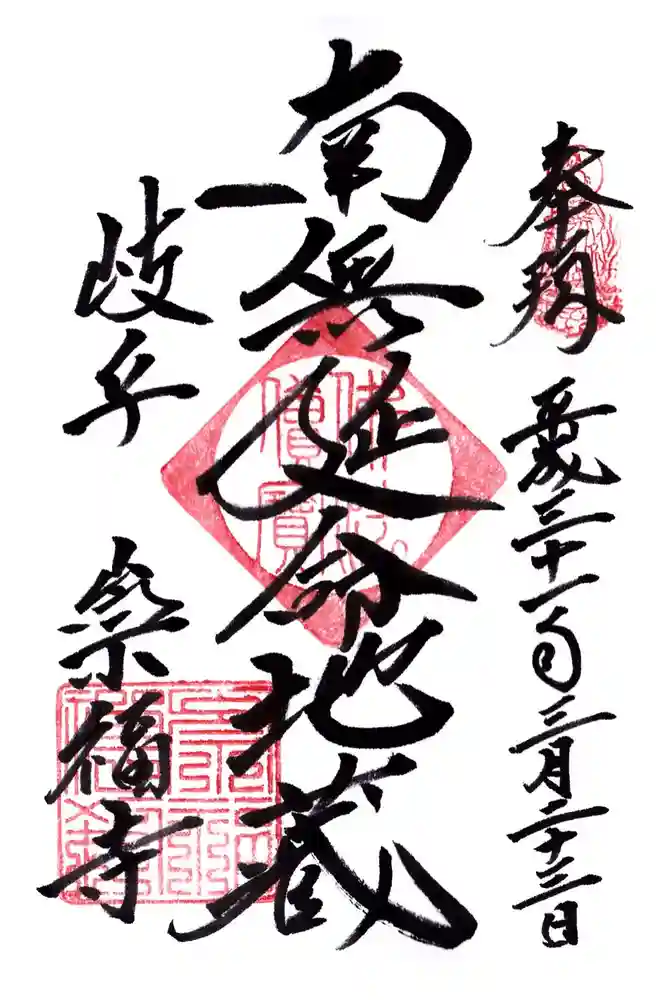 奉拝
平成三十一年三月二十三日
南無延命地蔵
佛法僧寶
岐阜
崇福寺